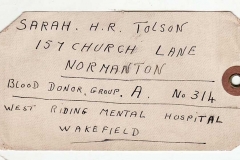 SARAH. H.R. TOLSON
157 CHURCH LANE
NORMANTON
BLOOD DONOR, GROUP, A. No 314
WEST RIDING MENTAL HOSPITAL
WAKEFIELD